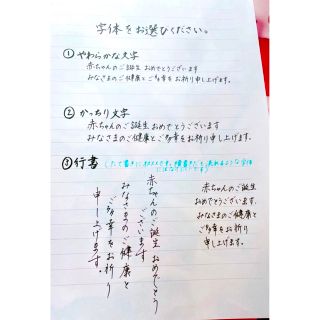 字体をお選びください。
①やわらかな文字
赤ちゃんのご誕生おめでとうございます
みなさまのご健康とご多幸をお祈り申し上げます。
②かっちり文字
赤ちゃんのご誕生おめでとうございます
みなさまのご健康とご多幸をお祈り申し上げます。
③行書
(たて書きにオススメです。横書きだと、流れるような字体
にはなりにくいです)
赤ちゃんのご誕生おめでとう
ございます
みなさまのご健康と
ご多幸をお祈り
申し上げます。
赤ちゃんのご誕生
おめでとうございます。
みなさまのご健康と
ご多幸をお祈り
申し上げます。